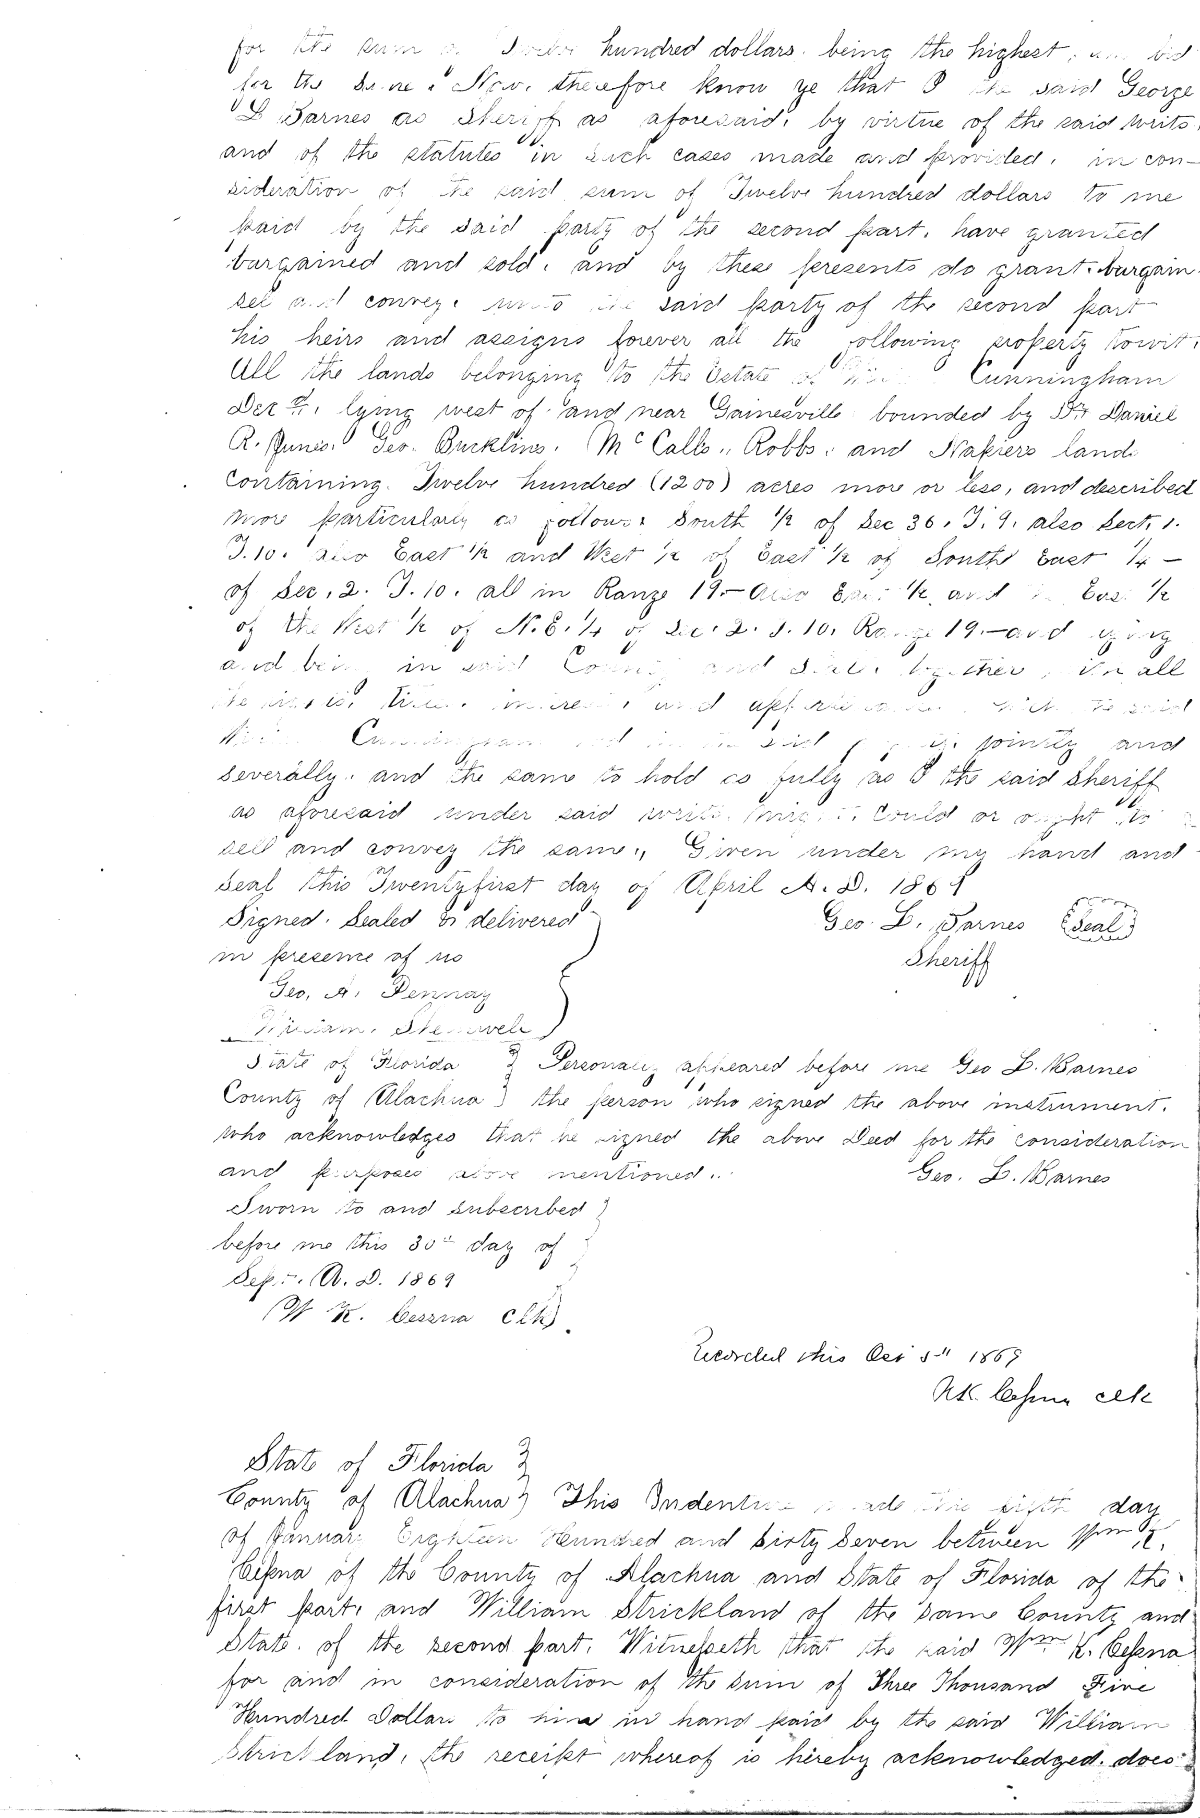 for the sum of Twelve hundred dollars. being the highest, bid
for the same. Now, therefore know ye that I the said George
L Barnes as Sheriff as aforesaid, by virtue of the said writs,
and of the statutes in such cases made and provided, in con-
sideration of the said sum of Twelve hundred dollars to me
paid by the said party of the second part, have granted
bargained and sold, and by these presents do grant, bargain
sel and convey, unto the said party of the second part
his heirs and assigns forever all the following property towit,
All the lands belonging to the Estate of Cunningham
Decd. lying west of and near Gainesville bounded by Daniel
R. Geo. Bucklins. McCalls,, Robbs, and Napiers land.
Containing. Twelve hundred (1200) acres more or less, and described
more particularly as follows: South 1/2 of Sec 36. T. 9. also Sect. 1.
T. 10. also East 1/2 and West 1/2 of East 1/2 of South East 1/4 -
of Sec. 2. T. 10. all in Range 19.- Also East 1/2 and East 1/2
of the West 1/2 of N. E. 1/4 of Sec. 2. T. 10. Range 19.- and lying
and being in said County and State. together with all
the title, interest, and which the said
Cunningham had in the said jointly and
severally. and the same to hold as fully as I the said Sheriff
as aforesaid under said writs might, could or ought to
sell and convey the same., Given under my hand and
Seal this Twentyfirst day of April A. D. 186
Signed. Sealed & delivered Geo. L. Barnes (Seal)
in presence of us Sheriff
Geo. A.
William.
State of Florida } Personally appeared before me Geo L. Barnes
County of Alachua } the person who signed the above instrument.
who acknowledges that he signed the above Deed for the consideration
and purposes above mentioned.. Geo. L. Barnes
Sworn to and subscribed }
before me this 30th day of
Sept. A. D. 1869
W K. Cessna Clk
Recorded this Oct 1869
W.K. Cessna Clk
State of Florida }
County of Alachua } This Indenture made this fifth day
of January Eighteen Hundred and Sixty Seven between Wm K.
Cessna of the County of Alachua and State of Florida of the
first part, and William Strickland of the same County and
State. of the second part. Witnesseth that the said Wm K. Cessna
for and in consideration of the sum of Three Thousand Five
Hundred Dollars to him in hand paid by the said William
Strickland, the receipt whereof is hereby acknowledged. does